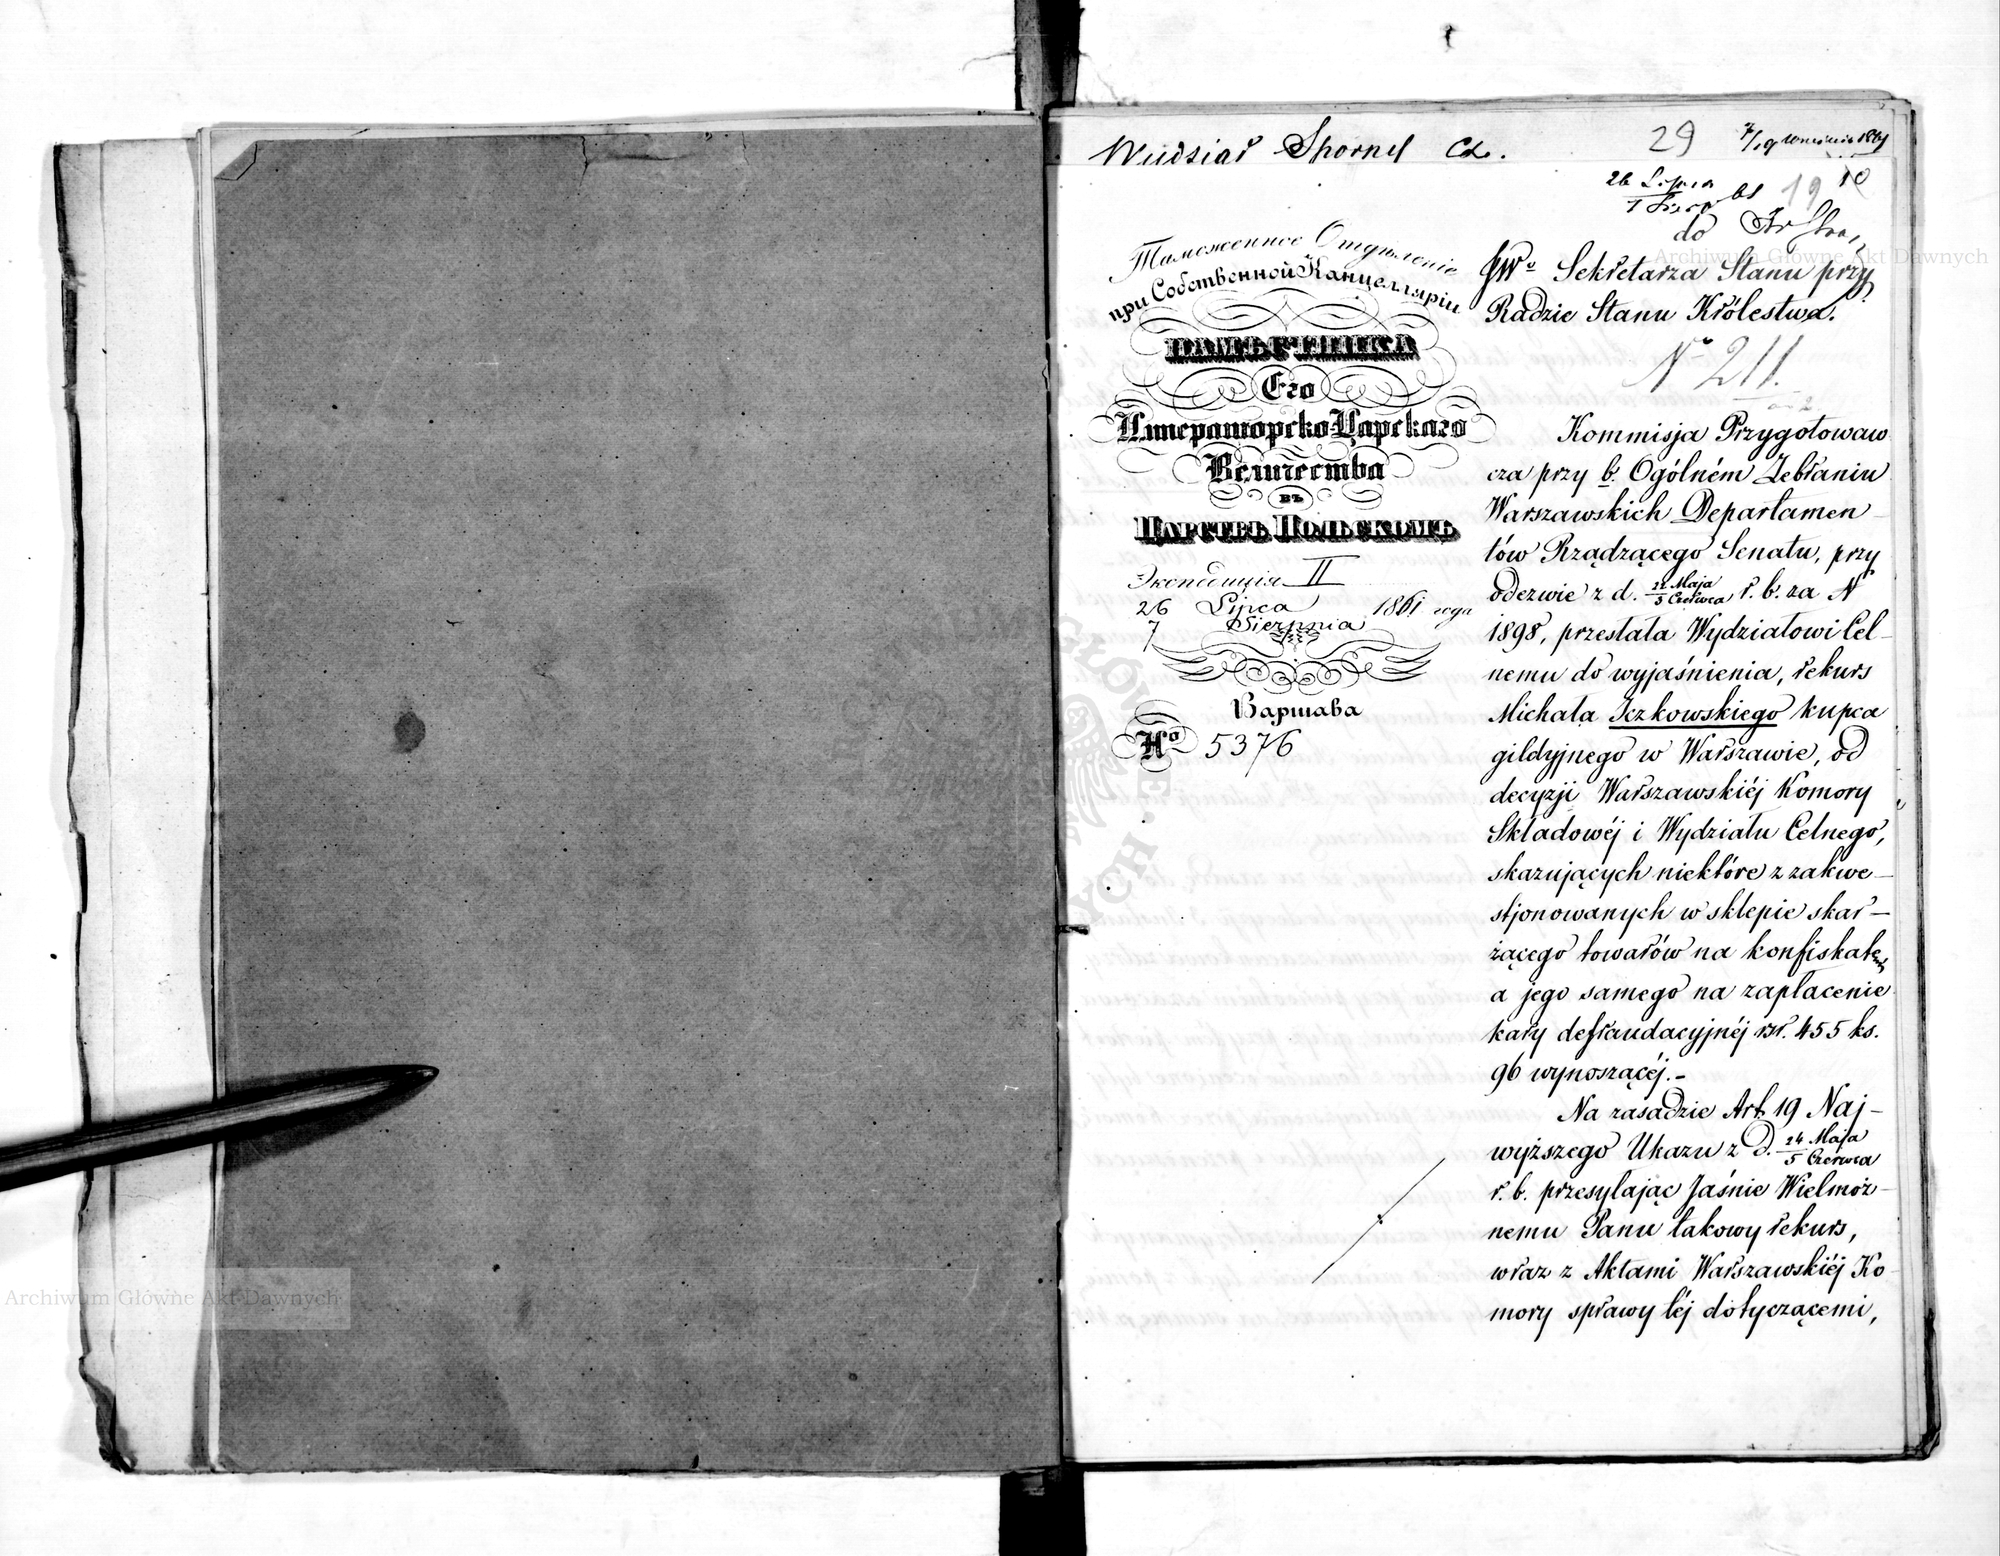 Wydział Sporny Cz.
29
7/19 Września 1861
26 Lipca
7 Sierp. 61
19
10
do
Таможенное Отдѣленіе
при Собственной Канцеляріи
НАМѢСТНИКА
Его
Императорско-Царскаго
Величества
въ
ЦАРСТВѢ ПОЛЬСКОМЪ
Экспедиція II
26 Lipca
7 Sierpnia 1861 года
Варшава
No 5376
JWo Sekretarza Stanu przy
Radzie Stanu Królestwa.
No 211.
Kommisja Przygotowaw
cza przy b. Ogólném Zebraniu
Warszawskich Departamen-
tów Rządzącego Senatu, przy
odezwie z d. 24 Maja / 5 Czerwca r. b. za N
1898, przesłała Wydziałowi Cel-
nemu do wyjaśnienia, rekurs
Michała Iczkowskiego kupca
gildyjnego w Warszawie, od
decyzji Warszawskiéj Komory
Składowéj i Wydziału Celnego,
skazujących niektóre z zakwe-
stjonowanych w sklepie skar-
żącego towarów na konfiskatę
a jego samego na zapłacenie
kary defraudacyjnéj rsr. 455 ks.
96 wynoszącéj.-
Na zasadzie Art. 19 Naj-
wyższego Ukazu z d. 24 Maja / 5 Czerwca
r. b. przesyłając Jaśnie Wielmoż-
nemu Panu takowy rekurs,
wraz z Aktami Warszawskiéj Ko-
mory sprawy téj dotyczącemi,
Archiwum Główne Akt Dawnych
Archiwum Główne Akt Dawnych